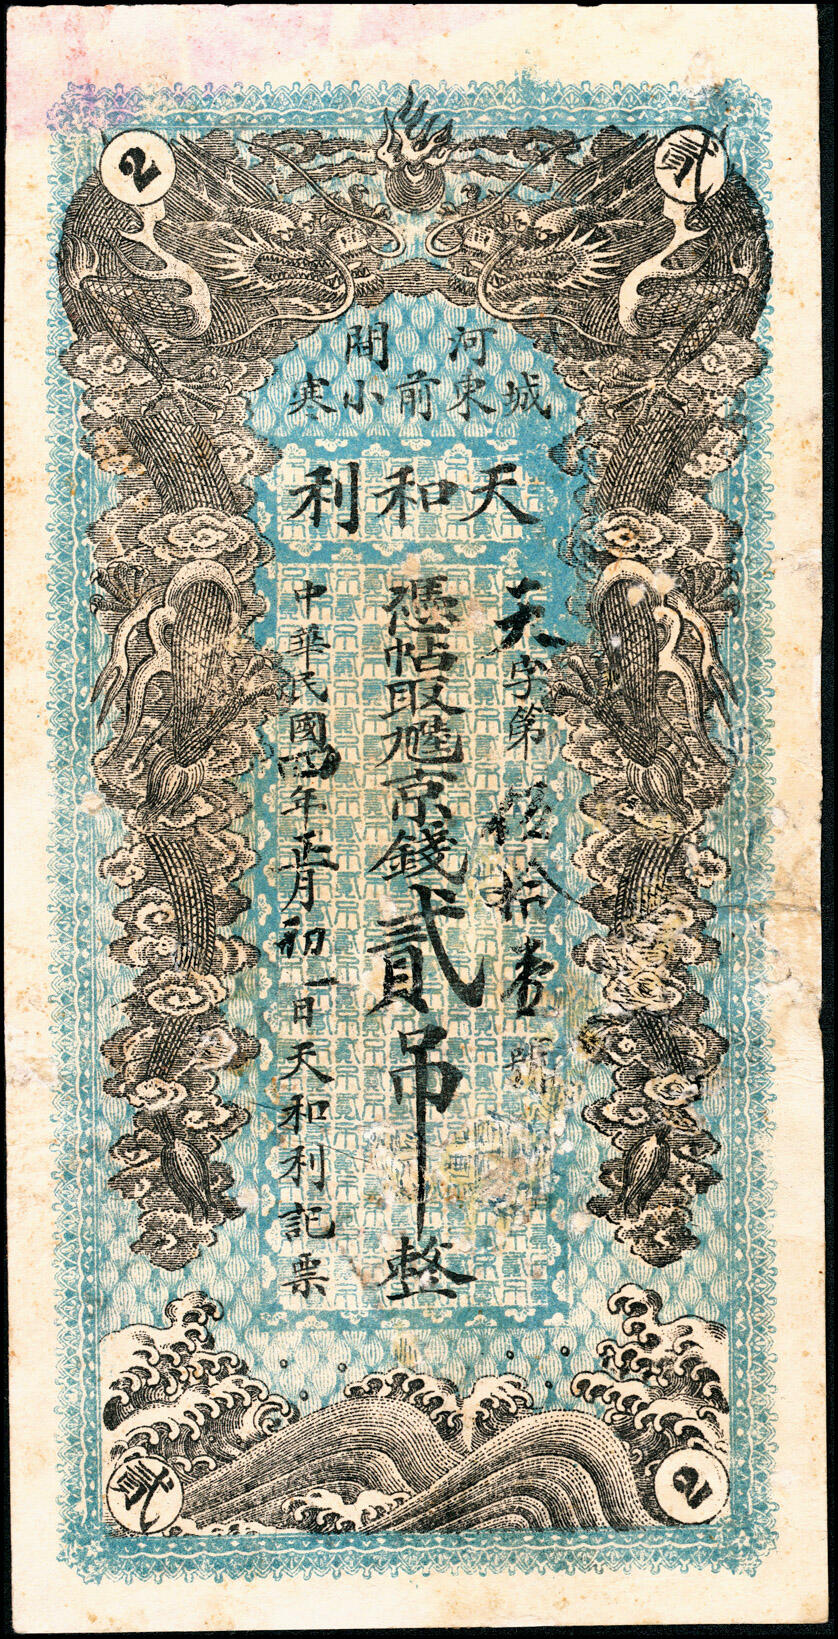 2
貳
河間
城東前小寒
天和利
天字第伍拾壹號
憑帖取京錢貳吊整
中華民國四年正月初一日天和利記票
貳
2